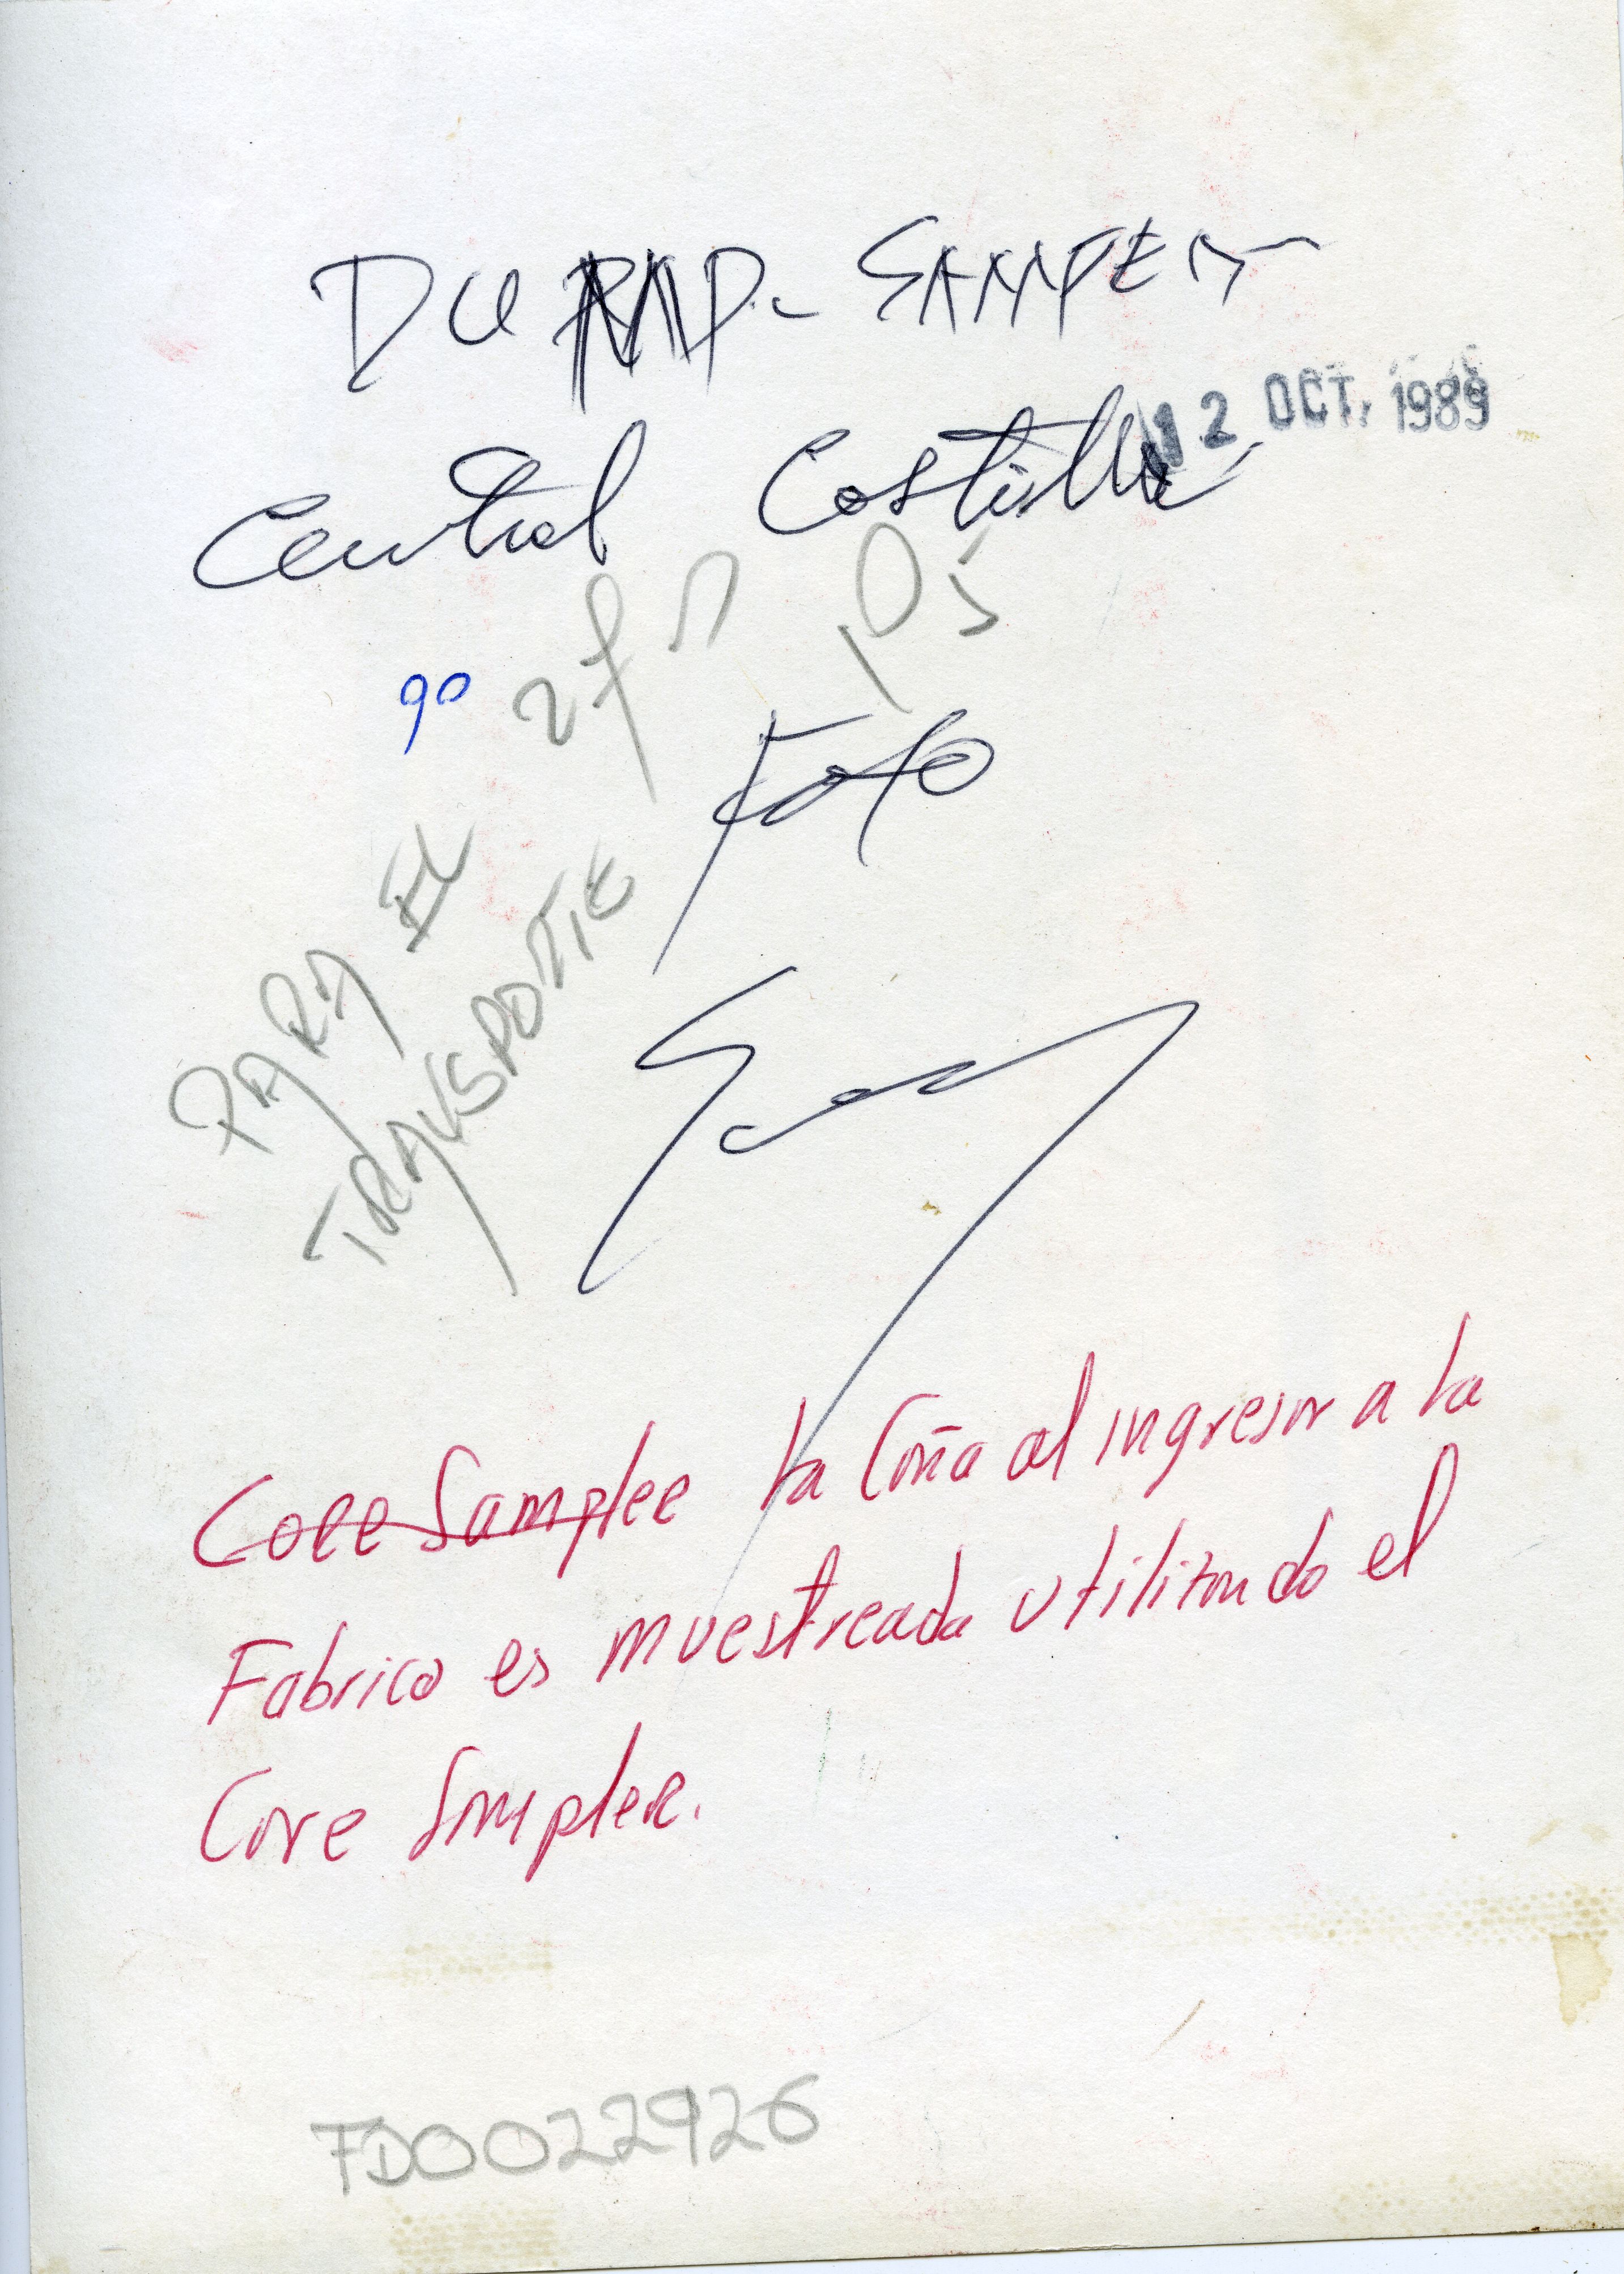 DUMP- SAMPER
12 OCT. 1989
Central Castilla
90
Foto
PARA EL
TRANSPORTE
Core Sampler la Caña al ingresar a la
Fabrica es muestreada utilizando el
Core Sampler.
FD0022926